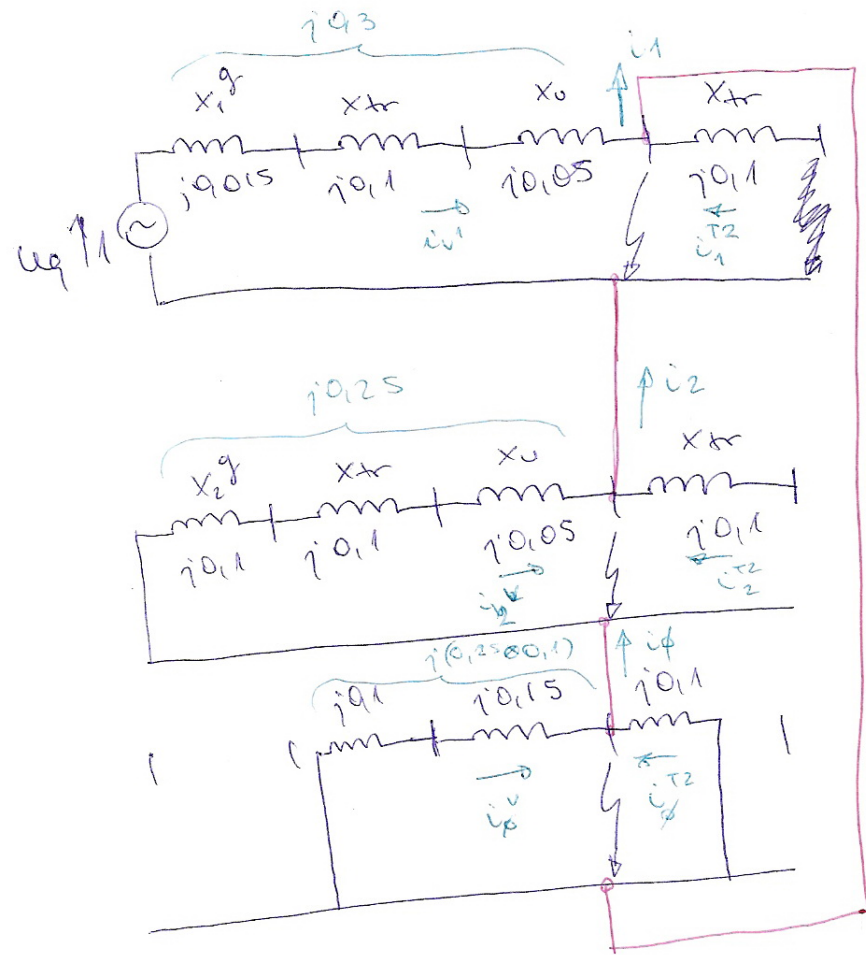 j0,3
i1
x₁ᵍ xtr xv xtr
j0,015 j0,1 j0,05 j0,1
ug 1
iv¹ i₁ᵀ²
j0,25
i2
x₂ᵍ xtr xv xtr
j0,1 j0,1 j0,05 j0,1
i₂ᵛ i₂ᵀ²
iϕ
j0,1 j0,15 j0,1
iϕᵛ iϕᵀ²